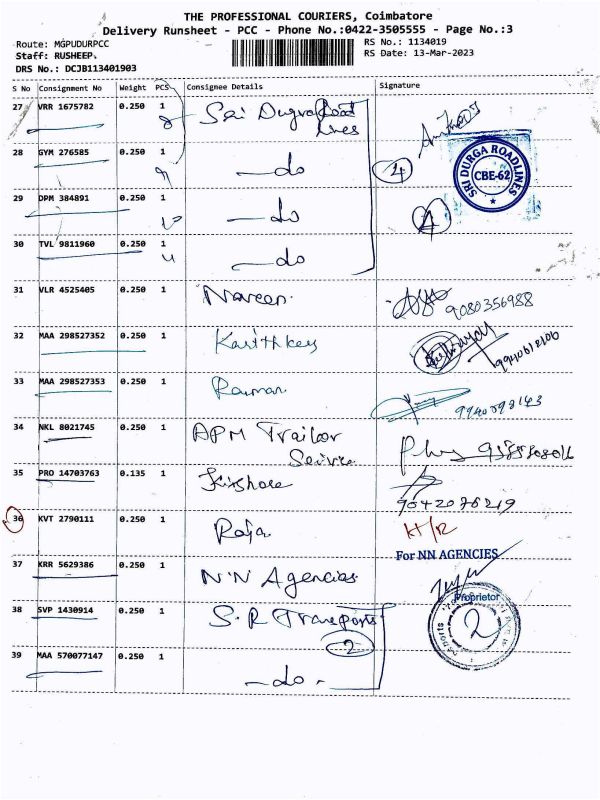 THE PROFESSIONAL COURIERS, Coimbatore
Delivery Runsheet - PCC - Phone No.:0422-3505555 - Page No.:3
Route: MGPUDURPCC
RS No.: 1134019
Staff: RUSHEEP.
RS Date: 13-Mar-2023
DRS No.: DCJB113401903
S No Consignment No Weight PCS Consignee Details Signature
27 VRR 1675782 0.250 1 Sri Durga Road
lines
28 GYM 276585 0.250 1 —do 4
SRI DURGA ROADLINES
CBE-62
29 DPM 384891 0.250 1 —do 4
30 TVL 9811960 0.250 1 —do
31 VLR 4525405 0.250 1 Naveen. 9080356988
32 MAA 298527352 0.250 1 Karthikey
33 MAA 298527353 0.250 1 Raman 9940598143
34 NKL 8021745 0.250 1 APM Trailor
Service
35 PRO 14703763 0.135 1 Kishore 9042076219
36 KVT 2790111 0.250 1 Raja H/R
For NN AGENCIES
37 KRR 5629386 0.250 1 N.N Agencies
Proprietor
38 SVP 1430914 0.250 1 S.R Transports
2 2
39 MAA 570077147 0.250 1 —do.